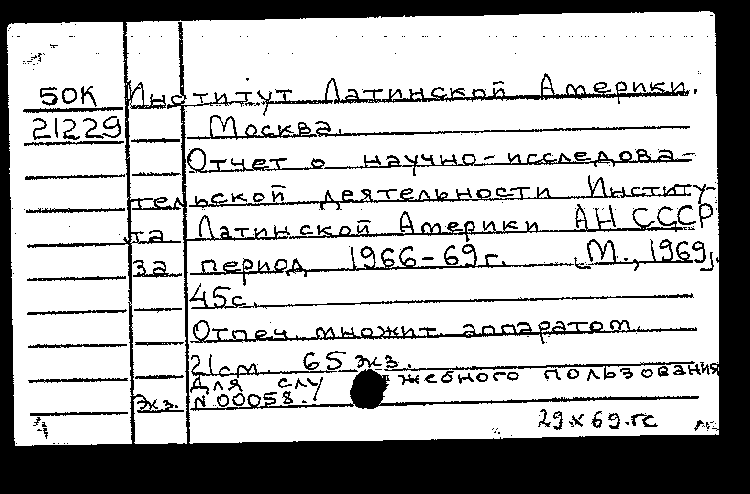 50К Институт Латинской Америки.
21229 Москва.
Отчет о научно-исследова-
тельской деятельности Институ-
та Латинской Америки АН СССР
за период 1966-69г. [М., 1969].
45с.
Отпеч. множит. аппаратом.
21см. 65 экз.
Для служебного пользования
Экз. N 00058.
29х69.гс